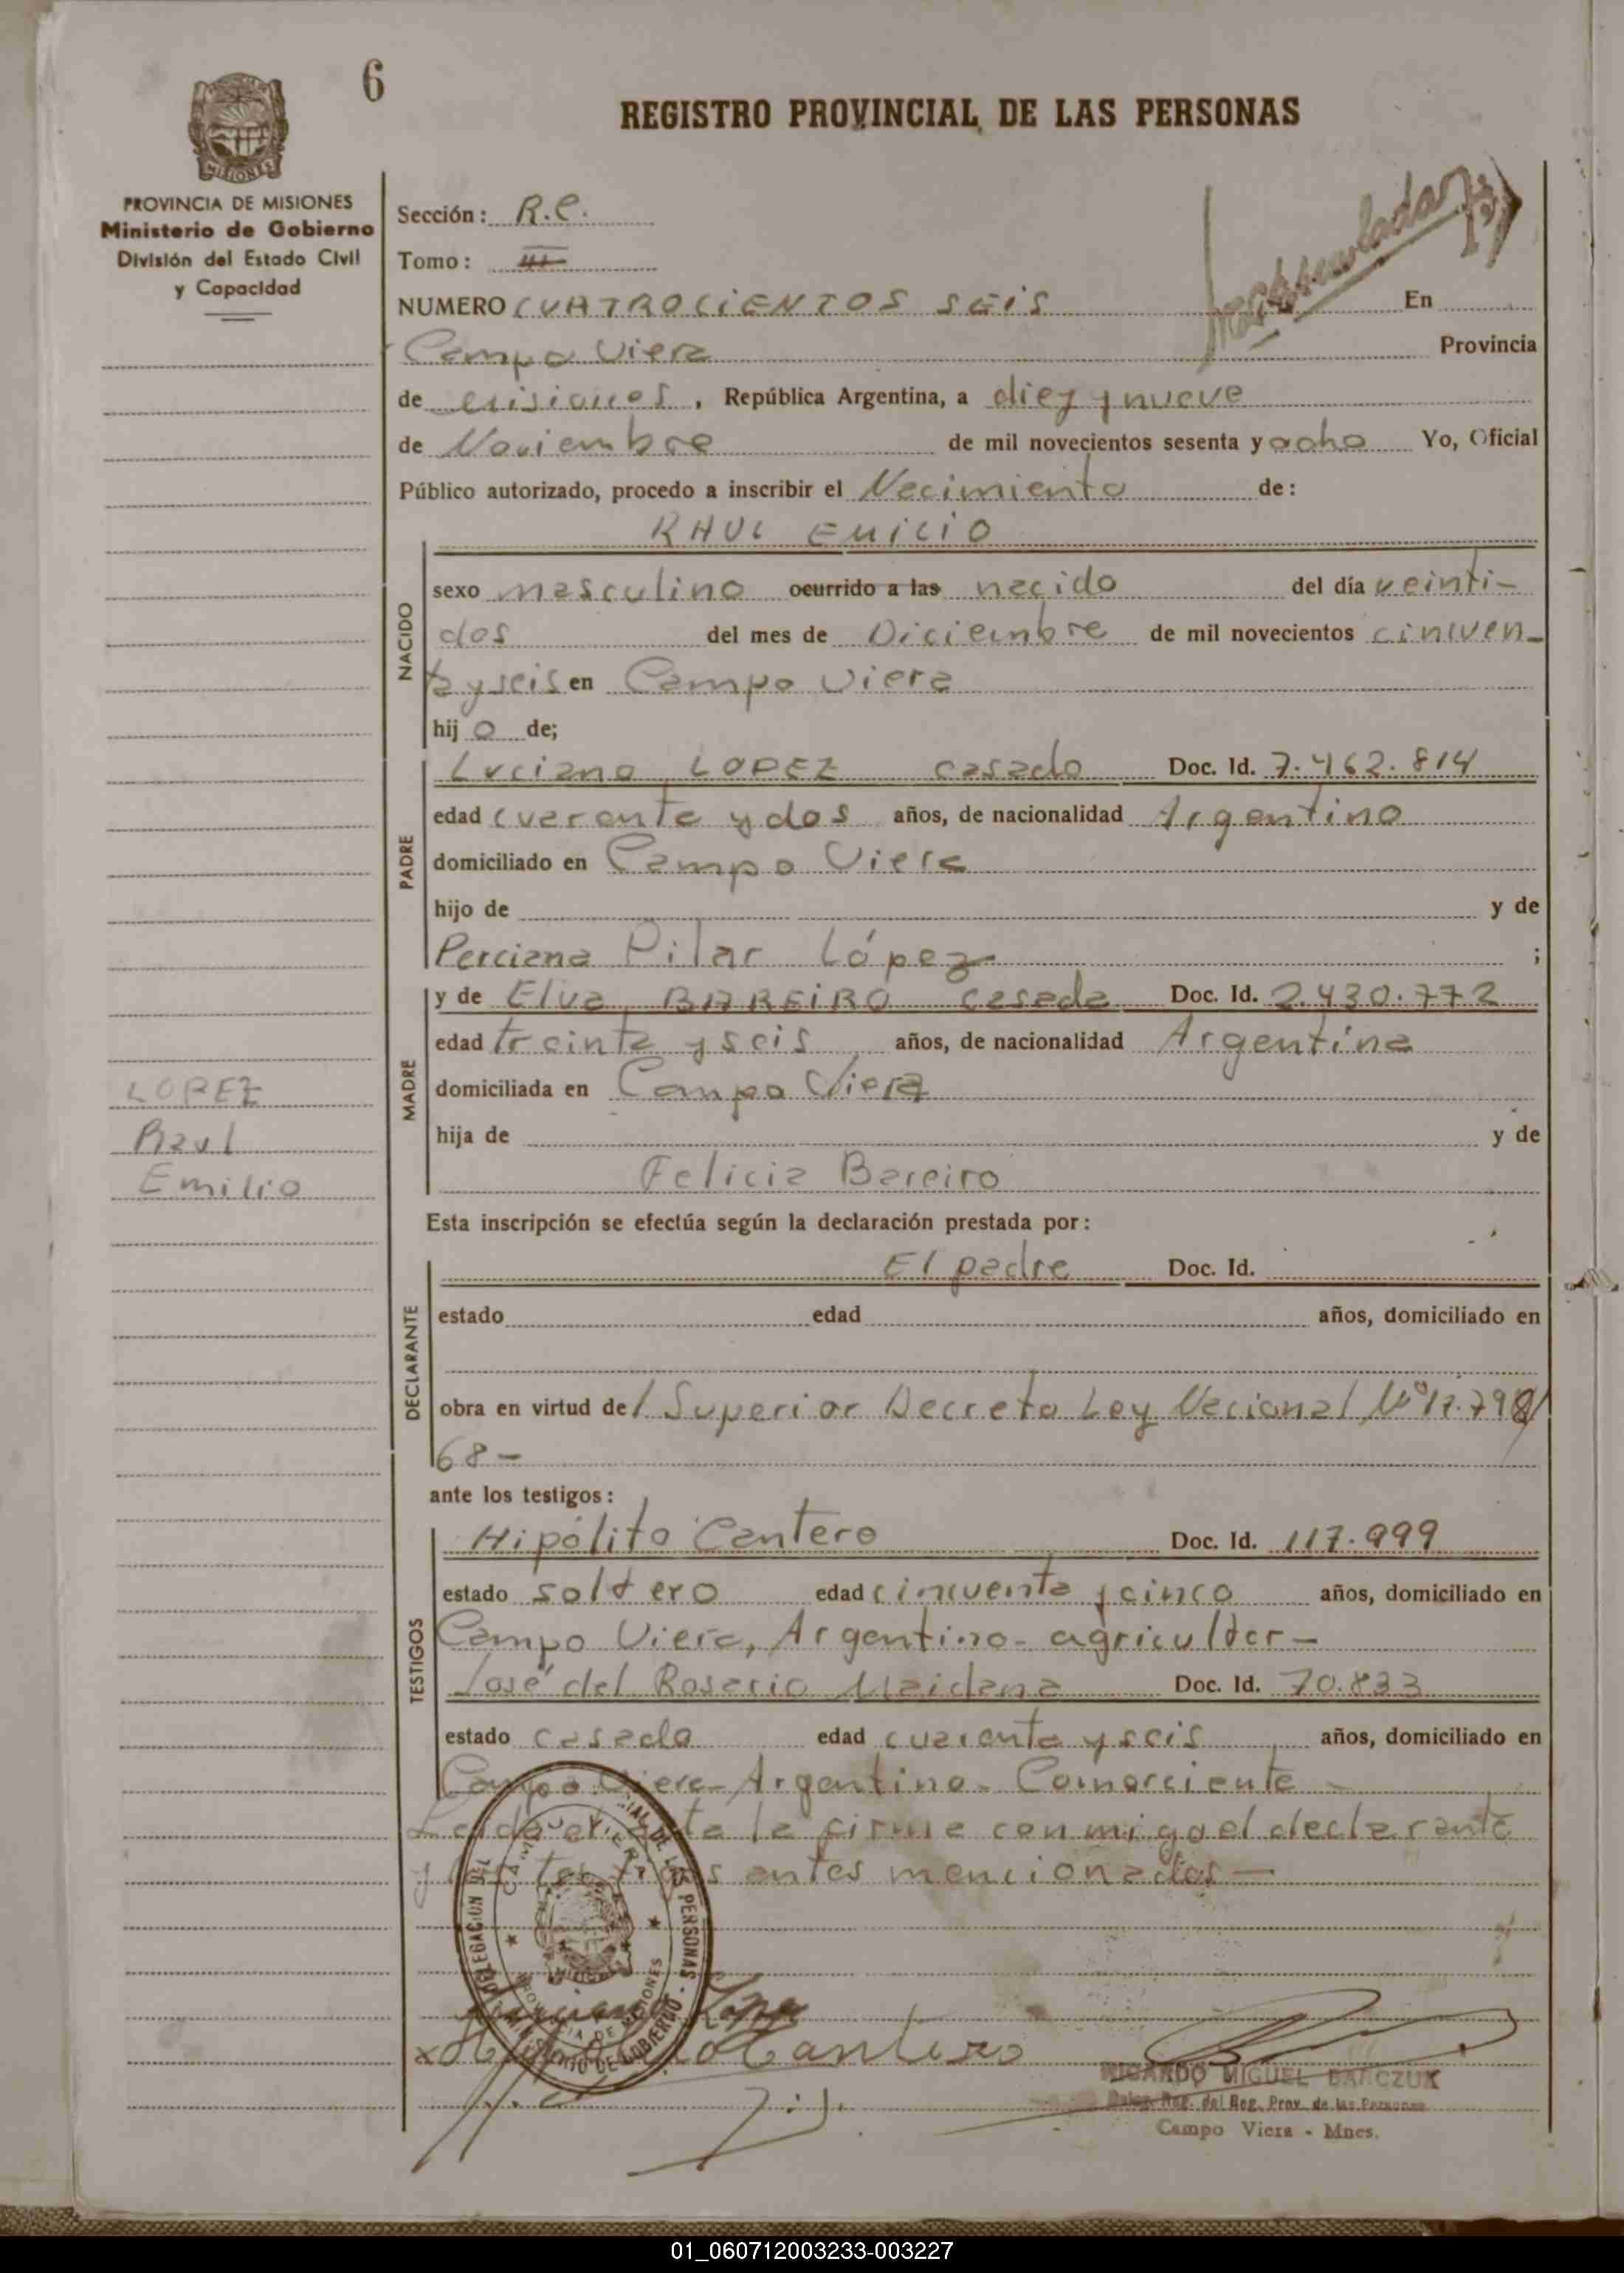 6
REGISTRO PROVINCIAL DE LAS PERSONAS
MISIONES
PROVINCIA DE MISIONES
Ministerio de Gobierno
División del Estado Civil
y Capacidad
Sección: R.C.
Tomo: III
NUMERO CUATROCIENTOS SEIS En
Campo Viera Provincia
de Misiones, República Argentina, a diez y nueve
de Noviembre de mil novecientos sesenta y ocho Yo, Oficial
Público autorizado, procedo a inscribir el Nacimiento de:
RAUL EMILIO
NACIDO
sexo masculino ocurrido a las nacido del día veinti-
dos del mes de Diciembre de mil novecientos cincuen-
ta y seis en Campo Viera
hij o de;
PADRE
Luciano LOPEZ casado Doc. Id. 7.462.814
edad cuarenta y dos años, de nacionalidad Argentino
domiciliado en Campo Viera
hijo de y de
Perciana Pilar López ;
MADRE
y de Elva BAREIRO casada Doc. Id. 2.430.772
edad treinta y seis años, de nacionalidad Argentina
domiciliada en Campo Viera
hija de y de
Felicia Bareiro
LOPEZ
Raul
Emilio
Esta inscripción se efectúa según la declaración prestada por:
DECLARANTE
El padre Doc. Id.
estado edad años, domiciliado en
obra en virtud de l Superior Decreto Ley Nacional Nº 17.798/
68-
ante los testigos:
TESTIGOS
Hipólito Cantero Doc. Id. 117.999
estado soltero edad cincuenta y cinco años, domiciliado en
Campo Viera, Argentino- agricultor-
José del Rosario Maidana Doc. Id. 70.833
estado casado edad cuarenta y seis años, domiciliado en
Campo Viera- Argentino- Comerciante-
Leida el acta la firma conmigo el declarante
y los testigos antes mencionados-
DELEGACION DEL REGISTRO PROVINCIAL DE LAS PERSONAS - MINISTERIO DE GOBIERNO
CAMPO VIERA
PROVINCIA DE MISIONES
Luciano López
x Hipólito Cantero
RICARDO MIGUEL BAÑCZUK
Deleg. Reg. del Reg. Prov. de las Personas
Campo Viera - Mnes.
01_060712003233-003227